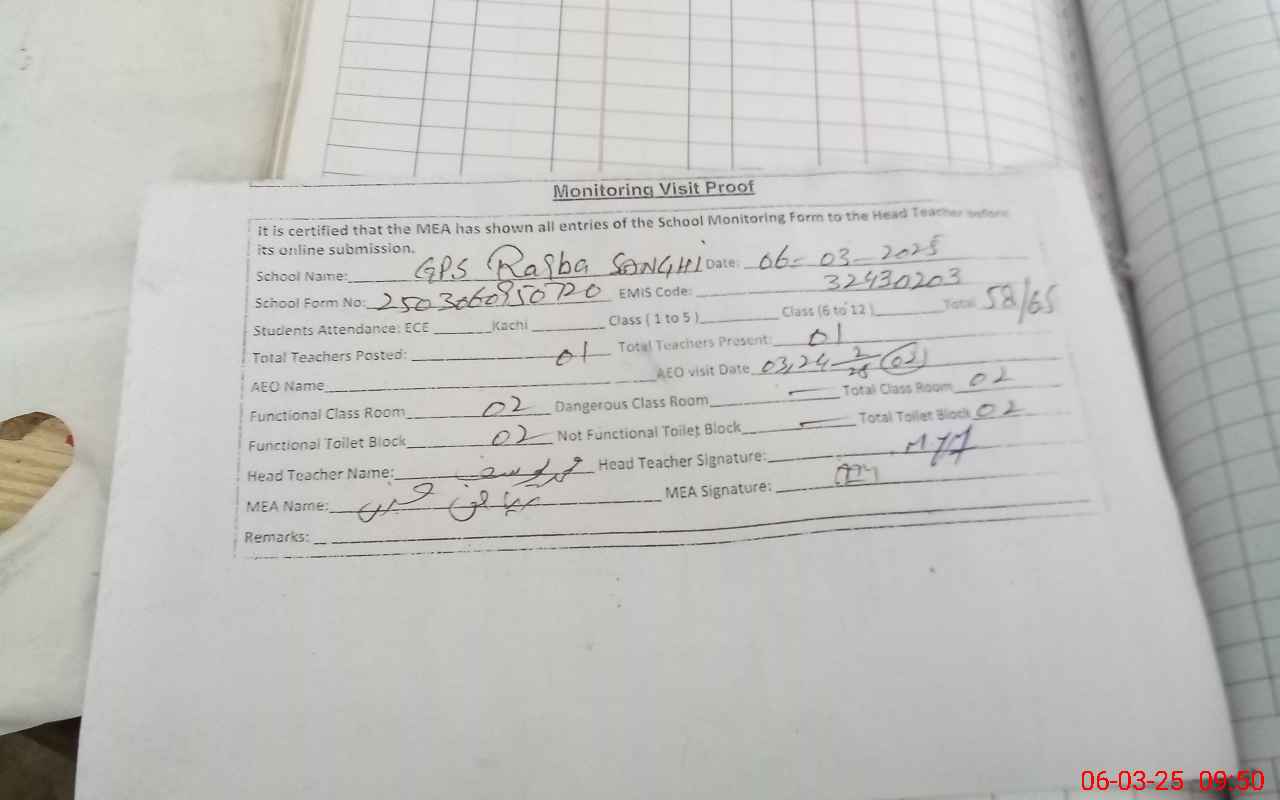 Monitoring Visit Proof
It is certified that the MEA has shown all entries of the School Monitoring Form to the Head Teacher before
its online submission.
School Name: GPS Rasba SANGHI Date: 06-03-2025
School Form No: 2503060950720 EMIS Code: 32430203
Students Attendance: ECE Kachi Class ( 1 to 5 ) Class (6 to 12 ) Total 58/65
Total Teachers Posted: 01 Total Teachers Present: 01
AEO Name AEO visit Date 03,24 2/25 (02)
Functional Class Room 02 Dangerous Class Room — Total Class Room 02
Functional Toilet Block 02 Not Functional Toilet Block — Total Toilet Block 02
Head Teacher Name: Head Teacher Signature:
MEA Name: MEA Signature:
Remarks:
06-03-25 09:50